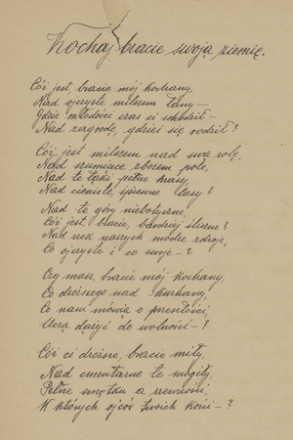 Kochaj bracie swoją ziemię.
Cóż jest, bracie mój kochany,
Nad ojczyste milszem łany –
Gdzie młodości czas ci schodził –
Nad zagrodę, gdzieś się rodził?
Cóż jest milszem nad swą rolę,
Nad szumiące zbożem pole,
Nad te łąki pełne krasy,
Nad cieniste, śpiewne lasy?
Nad te góry niebotyczne,
Cóż jest, bracie, bardziej śliczne?
Nad rzek naszych modre zdroje,
Co ojczyste i co swoje – ?
Czy masz, bracie mój kochany,
Co droższego nad kurhany,
Co nam mówią o przeszłości,
Uczą dążyć do wolności – ?
Cóż ci droższe, bracie miły,
Nad cmentarne te mogiły,
Pełne smętku a rzewności,
W których ojców twoich kości – ?